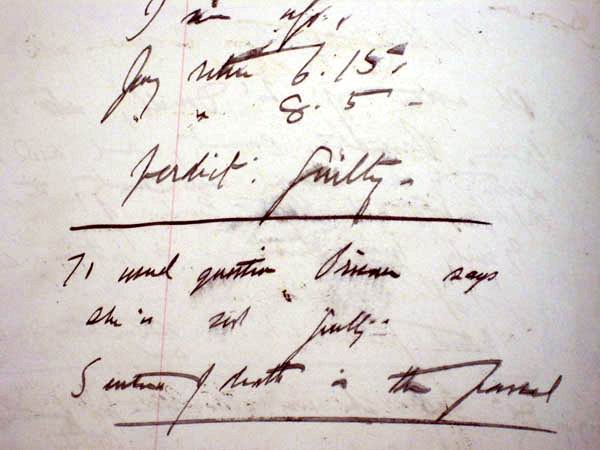 Jury retire 6.15.
" 8.5 -
Verdict: Guilty -
To usual question Prisoner says
she is not guilty.
Sentence of death is then passed